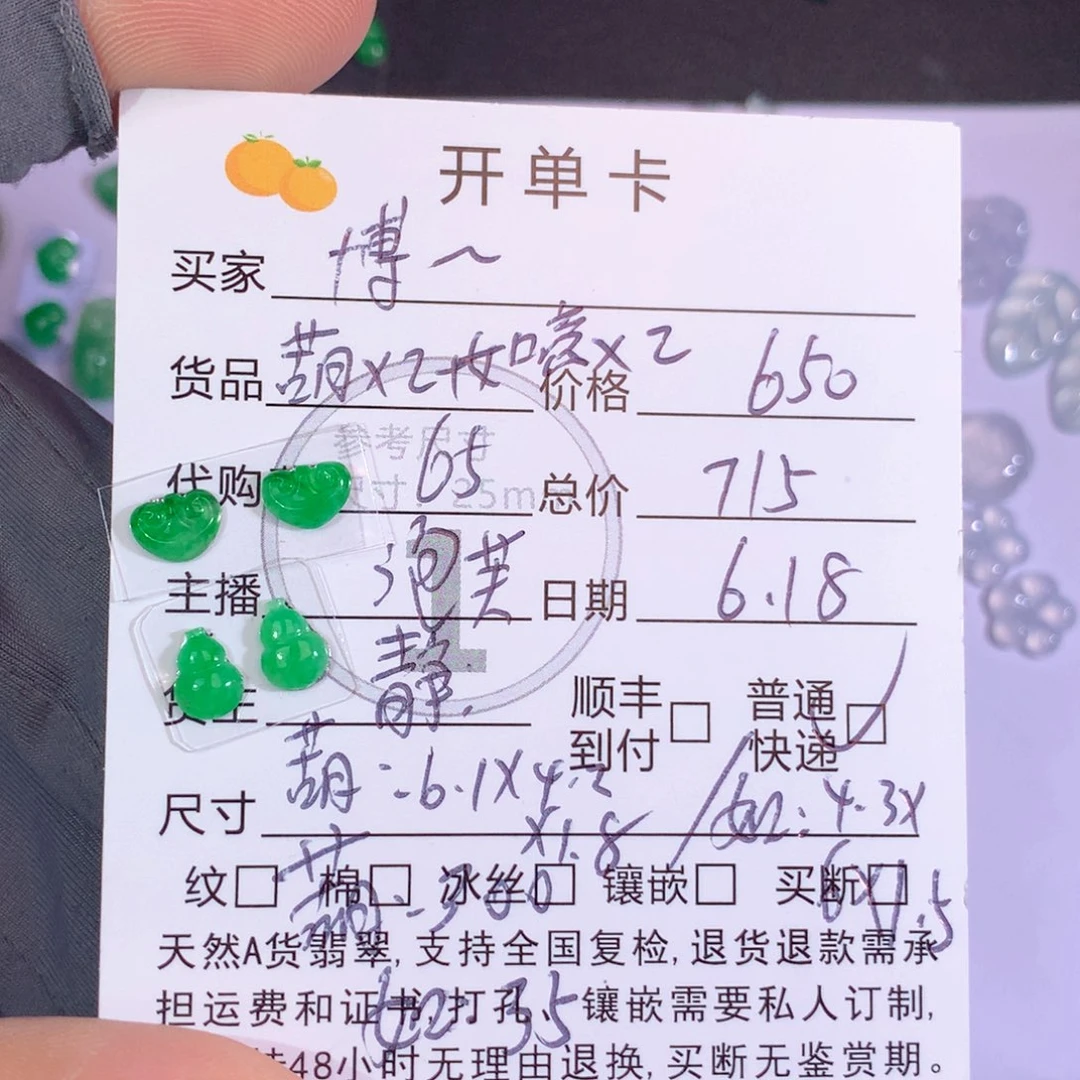 开单卡
买家 博~
货品 葫x2 如噫x2 价格 650
参考尺寸
代购 65 总价 715
尺寸:25mm
主播 泡芙 日期 6.18
1
货主 静.
顺丰到付□ 普通快递□
葫:6.1X4.2X1.8 / 如:4.3X6X1.5
尺寸
纹□ 棉□ 冰丝□ 镶嵌□ 买断□
葫:300
天然A货翡翠,支持全国复检,退货退款需承
担运费和证书,打孔、镶嵌需要私人订制,
如:35
48小时无理由退换,买断无鉴赏期。